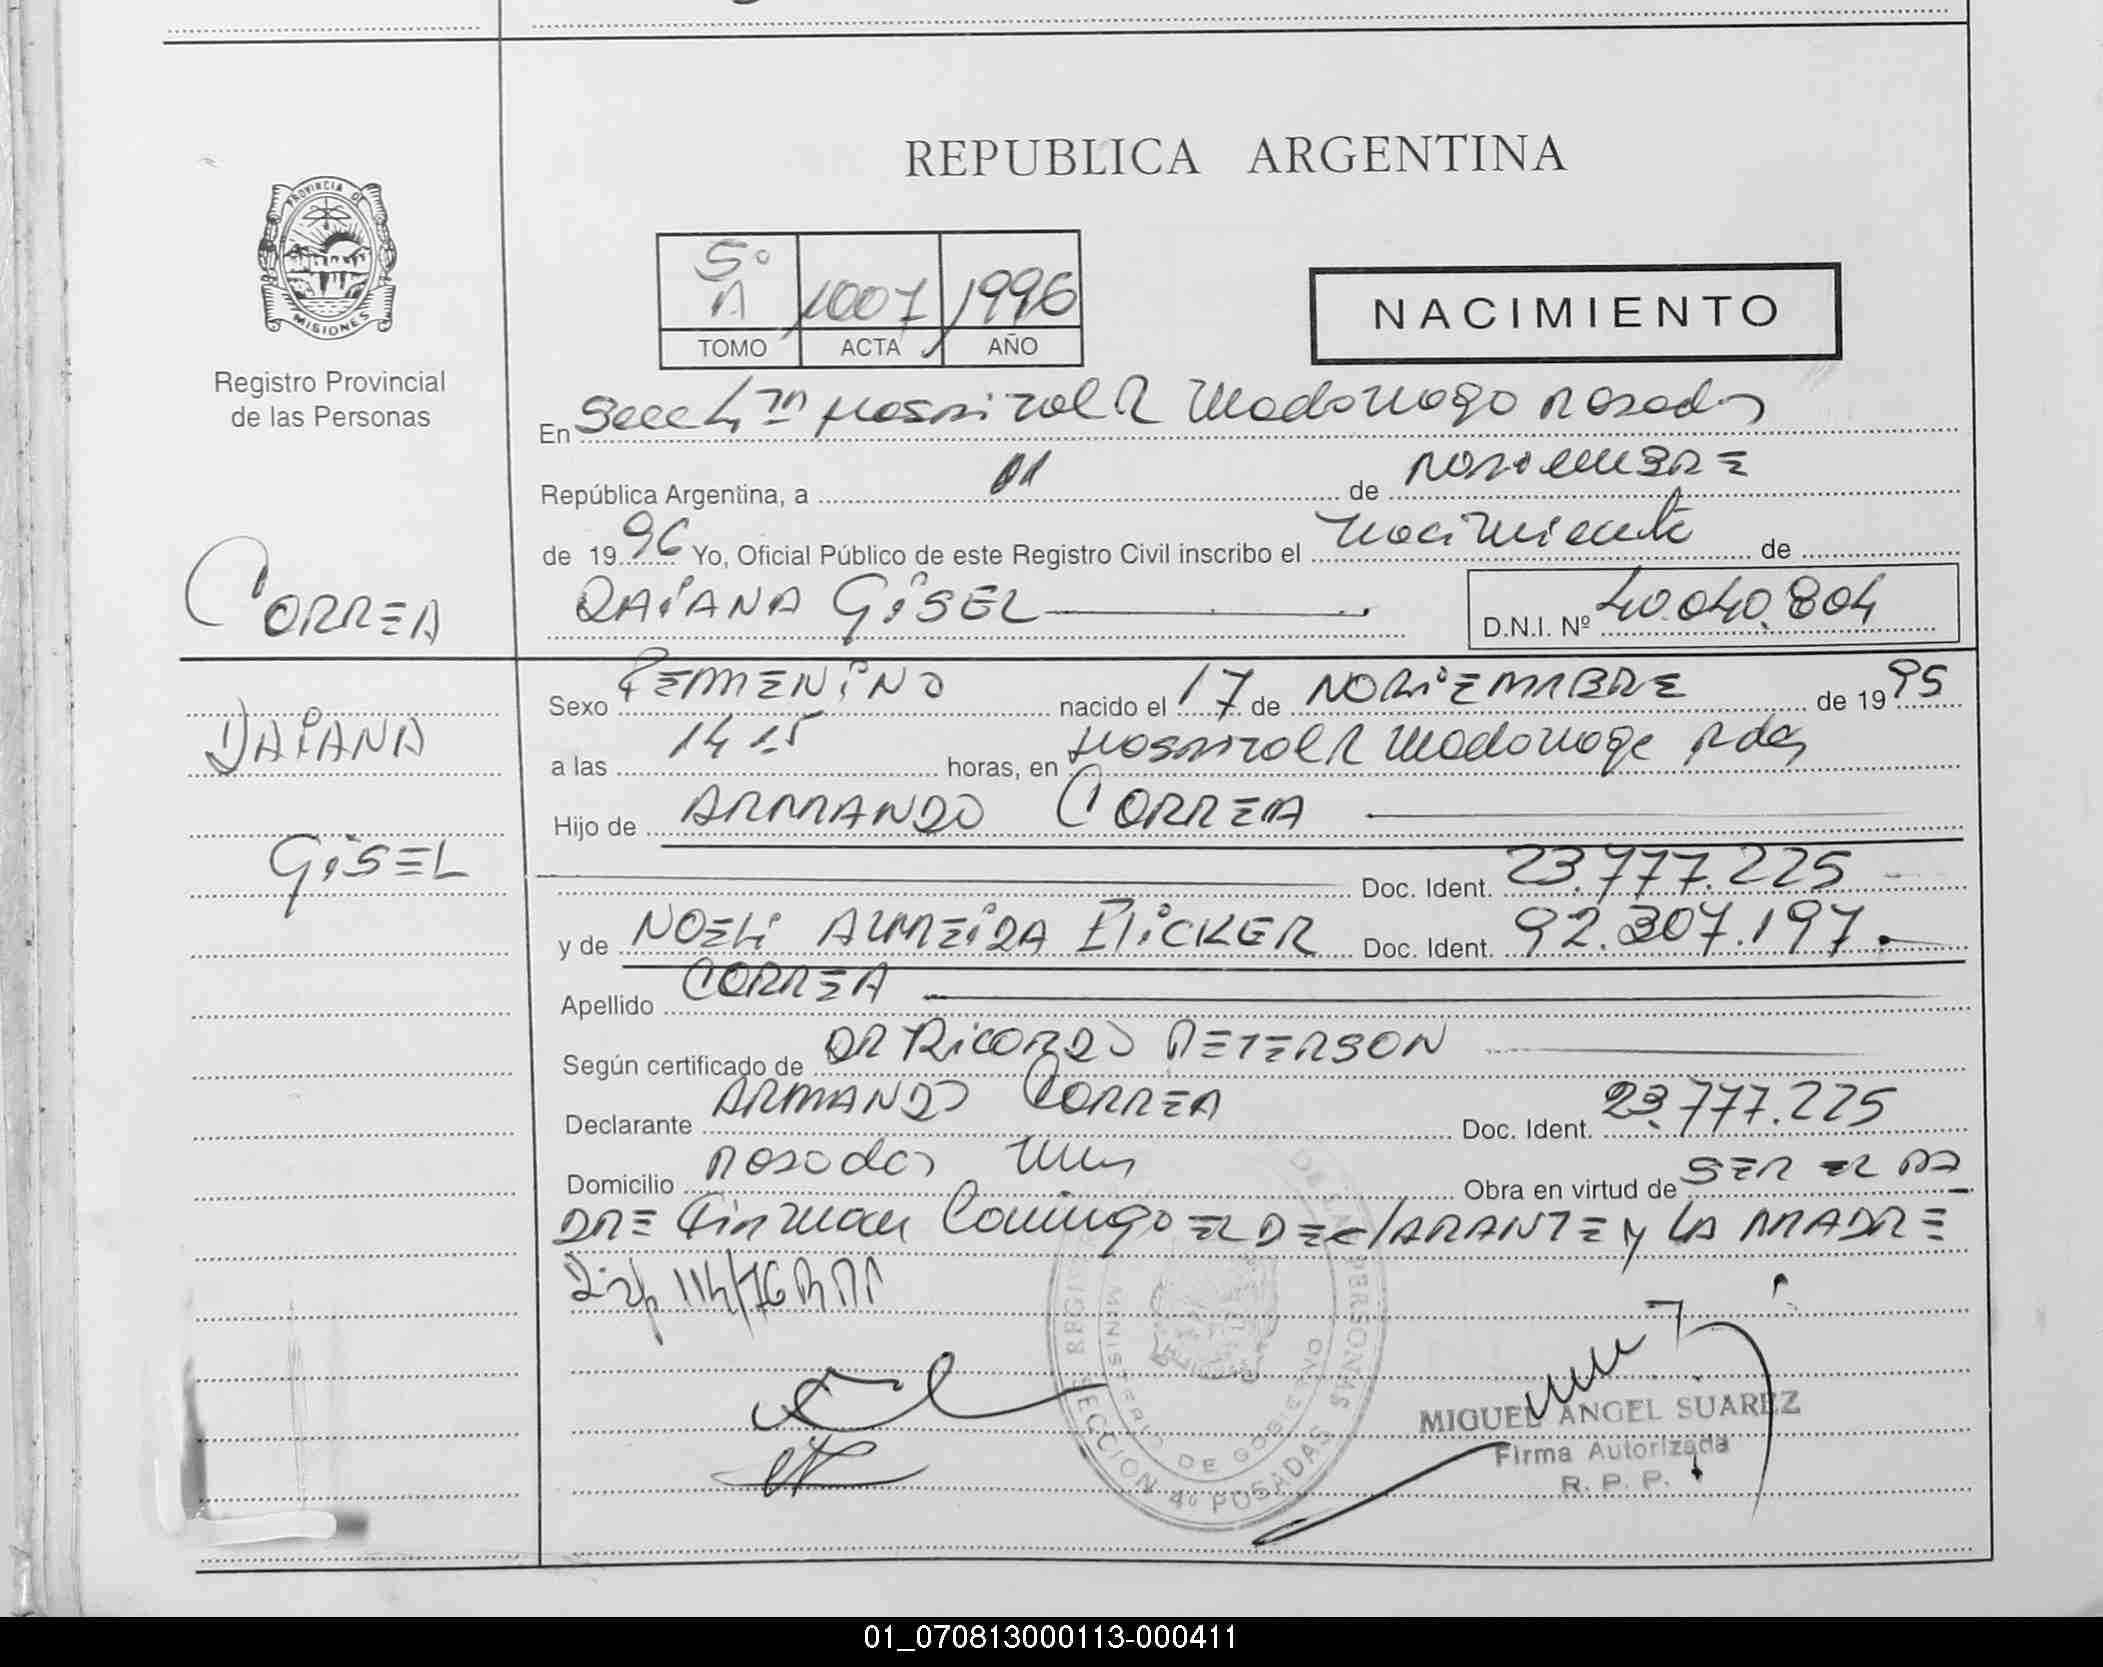 REPUBLICA ARGENTINA
PROVINCIA DE
MISIONES
Registro Provincial
de las Personas
5º
A 1007 1996
TOMO ACTA AÑO
NACIMIENTO
En Secc 4ta Hospital R Madariaga Posadas
República Argentina, a 01 de NOVIEMBRE
de 1996 Yo, Oficial Público de este Registro Civil inscribo el nacimiento de
DAIANA GISEL
D.N.I. Nº 40.040.804
CORREA
DAIANA
GISEL
Sexo FEMENINO nacido el 17 de NOVIEMBRE de 1995
a las 14 15 horas, en Hospital R Madariaga Pdas
Hijo de ARMANDO CORREA
Doc. Ident. 23.777.225
y de NOELI ALMEIDA FLICKER Doc. Ident. 92.307.197.
Apellido CORREA
Según certificado de DR RICARDO PETERSON
Declarante ARMANDO CORREA Doc. Ident. 23.777.225
Domicilio Posadas Mnes Obra en virtud de SER EL PA
DRE Firman Conmigo EL DECLARANTE Y LA MADRE
REGISTRO DE LAS PERSONAS
MINISTERIO DE GOBIERNO
SECCION 4º POSADAS
MIGUEL ANGEL SUAREZ
Firma Autorizada
R. P. P.
01_070813000113-000411